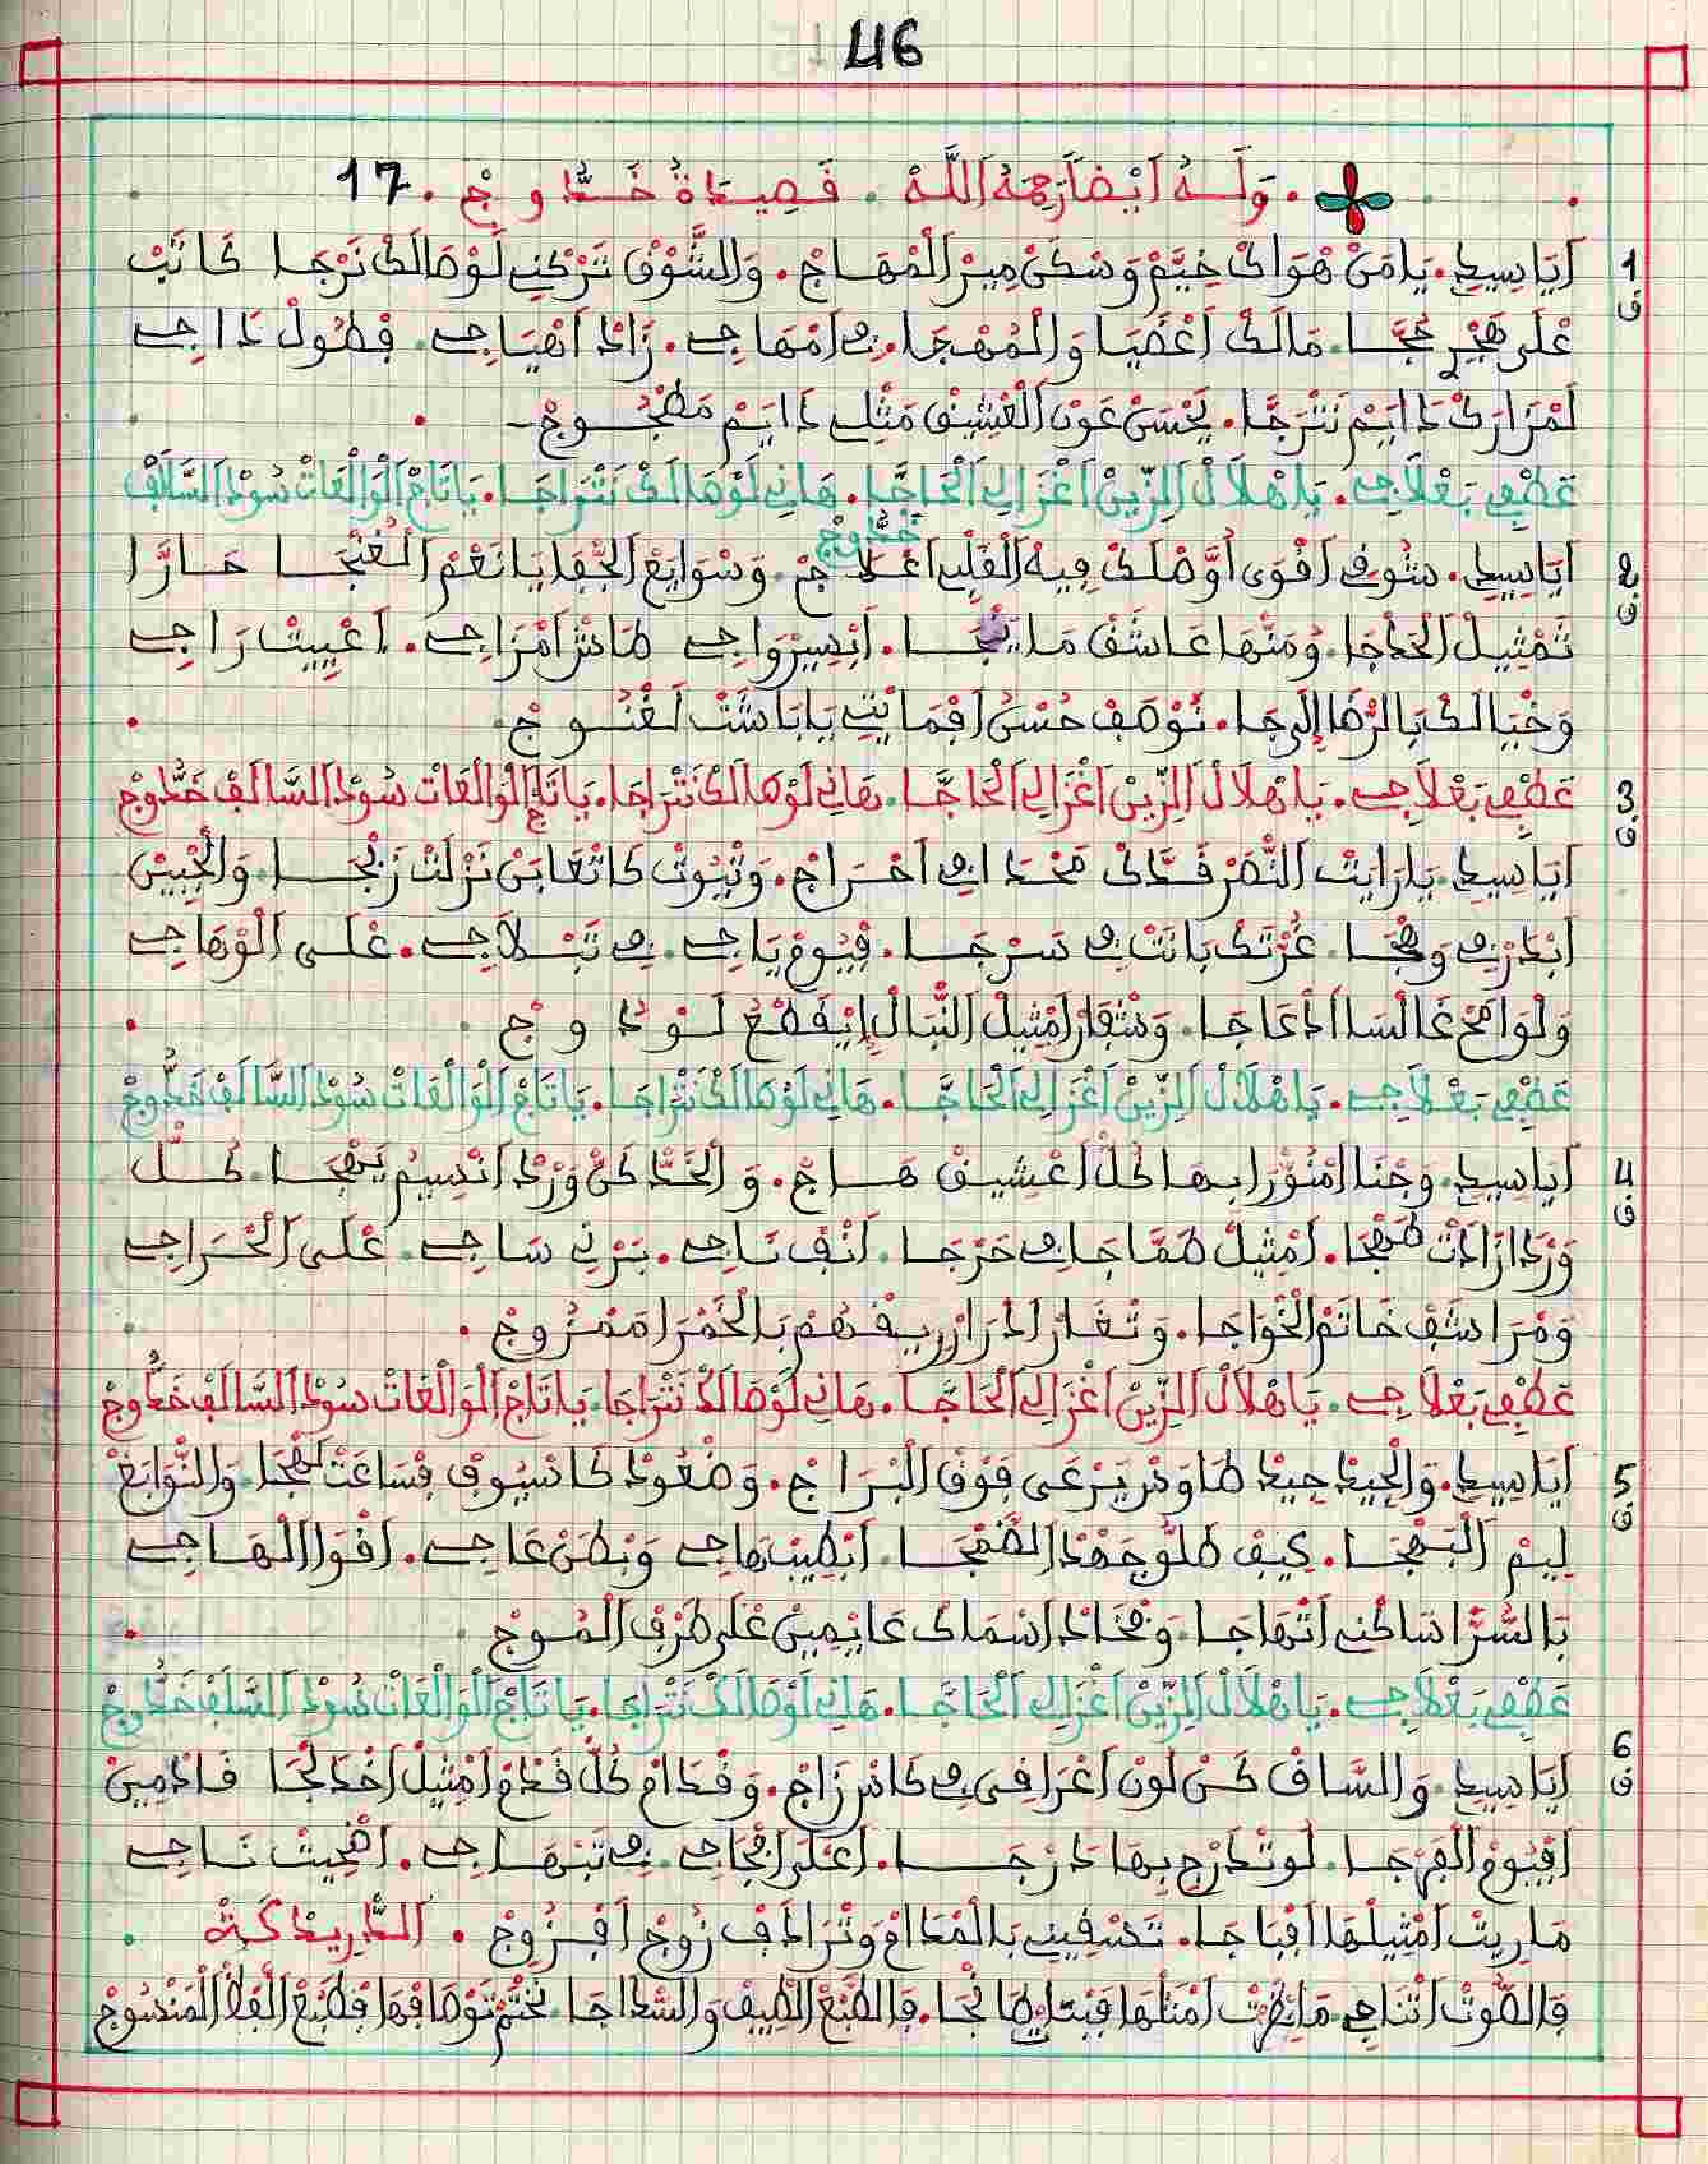 46
وَلَهُ اَيْضاً رَحِمَهُ اَللَّهْ . قَصِيدَةُ خَدُّوجْ . 17
1 اَيَا سِيدِي . يَا مَنْ هْوَاكْ خِيَّمْ وَسْكَنْ مِيرْ اَلْمْهَاجْ . وَالشَّوْقْ تَرْكْنِي لَوْصَالَكْ نَرْجَا كَانَبْ
ف
عْلَى هَجْرِي حُجَّا . مَالَكْ اَعْضَيَا وَالْمُهْجَا . فِي اَمْهَاجِي . زَادْ اَهْيَاجِي . فِطُولْ دَاجِي
لَمْزَارَكْ دَايَمْ نَتْرَجَّا . يَحْسَنْ عَوْنْ اَلْعْشِيقْ مَثْلِي دَايَمْ مَصْجُوجْ
عَطْفِي بَعْلَاجِي . يَا هْلَالْ اَلزِّينْ اَغْزَالِي اَلْحَاجَّا . هَانِي لَوْصَالَكْ نَتْرَاجَا . يَا تَاجْ اَلْوَالْعَاتْ سُودْ اَلسَّالَفْ
خَدُّوجْ
2 اَيَا سِيدِي . شُوفِي اَقْوَى اَوَّصْلَكْ فِيهْ اَلْقَلْبْ اَعْلَاجْ . وَسْوَايَعْ اَلْجْفَا يَا نَعْمْ اَلْغُنْجَا حَارَّا
ف
تَمْثِيلْ اَلْحَدْجَا . وُمَنْهَا عَاشَقْ مَا يَنْجَا . اَبْسِيرْ وَاجِي صَاشْ اَمْزَاجِي . اَعْيِيتْ رَاجِي
وَخْيَالَكْ بَالرّْضَا إِلَى جَا . نَوْصَفْ حُسْنُ اَفْمَا بْتِي يَا بَاشَتْ لَغْنُوجْ
عَطْفِي بَعْلَاجِي . يَا هْلَالْ اَلزِّينْ اَغْزَالِي اَلْحَاجَّا . هَانِي لَوْصَالَكْ نَتْرَاجَا . يَا تَاجْ اَلْوَالْعَاتْ سُودْ اَلسَّالَفْ خَدُّوجْ
3
ف
اَيَا سِيدِي . يَا رَايَتْ اَلنَّصْرْ قَدَّكْ فِي اَحْرَاجْ . وَتْيُوتْ كَاتْعَابَنْ نَزْلَتْ زَنْجَا . وَالْجْبِينْ
اَبْدَرْ فِي وَهْجَا . غُرْتَكْ بَانَتْ فِي سَرْجَا . فِيُومْ يَاجِي . فِي تَبْلَاجِي . عْلَى اَلْوْهَاجِي
وَلْوَامَحْ غَالْسَا اَدْعَاجَا . وَشْفَارْ اَمْثِيلْ اَلنّْبَالْ اِيْقَطْعْ لَوْدُوجْ
عَطْفِي بَعْلَاجِي . يَا هْلَالْ اَلزِّينْ اَغْزَالِي اَلْحَاجَّا . هَانِي لَوْصَالَكْ نَتْرَاجَا . يَا تَاجْ اَلْوَالْعَاتْ سُودْ اَلسَّالَفْ خَدُّوجْ
4 اَيَا سِيدِي . وَجْنَا اَمْنُوّْرَا بِهَا كُلّْ اَعْشِيقْ هَاجْ . وَالْخَدّْ كَنْ وَرْدْ اَنْسِيمْ يَهْجَا . كُلّْ
ف
وَرْدَا زَادَتْ صَهْجَا . اَمْثِيلْ صَمَّاجَا فِي حَرْجَا . اَنْفْ نَاجِي . بَرْنِي سَاجِي . عْلَى اَلْحْرَاجِي
وَمْرَاشَفْ خَاتْمْ اَلْخْوَاجَا . وَتْغَارْ اَدْرَارْ رِيقْهُمْ بَالْخَمْرَا مَمْزُوجْ .
عَطْفِي بَعْلَاجِي . يَا هْلَالْ اَلزِّينْ اَغْزَالِي اَلْحَاجَّا . هَانِي لَوْصَالَكْ نَتْرَاجَا . يَا تَاجْ اَلْوَالْعَاتْ سُودْ اَلسَّالَفْ خَدُّوجْ
5 اَيَا سِيدِي . وَالْجِيدْ جِيدْ طَاوَسْ يَرْعَى فَوْقْ اَلْبْرَاجْ . وَضْعُودْ كَاسْيُوفْ فِسَاعَتْ لَهْجَا . وَالنّْوَابَغْ
ف
لِيمْ اَلْبَهْجَا . كِيفْ طَلُّو جَهْدْ اَلضَّمْجَا . اَبْطِيبْهَاجِي وَبْطَنْ عَاجِي . اَقْوَا اَلْهَاجِي
بَالسُّرَّا سَاكْنِي اَتْهَاجَا . وَفْخَادْ اَسْمَاكْ عَايْمِينْ عْلَى طَرْفْ اَلْمُوجْ
عَطْفِي بَعْلَاجِي . يَا هْلَالْ اَلزِّينْ اَغْزَالِي اَلْحَاجَّا . هَانِي لَوْصَالَكْ نَتْرَاجَا . يَا تَاجْ اَلْوَالْعَاتْ سُودْ اَلسَّالَفْ خَدُّوجْ
6 اَيَا سِيدِي . وَالسَّاقْ كَنْ لُونْ اَعْرَاقِي فِي كَاسْ زَاجْ . وَقْدَامْ كُلّْ قْدَمْ اَمْثِيلْ اَخْدَلْجَا فَادْمِينْ
ف
اَفْيُومْ اَلْفَرْجَا . لَوْ تْدَرّْجْ بِهَا دَرْجَا . اَعْلَى اَفْجَاجِي . فِي تَبْهَاجِي . اَضْحِيتْ نَاجِي
مَا رِيتْ اَمْثِيلْهَا اَفْبَاجَا . تَسْقِينِي بَالْمْدَامْ وَتْرَادَفْ زُوجْ اَفْزُوجْ . اَلدّْرِيدْكَةْ .
فَالصُّوتْ اَتْنَاجِي مَا نْظَرْتْ اَمْثَلْهَا فِبْتَا يِطَانْجَا . فَالطَّبْعْ اَلطِيفْ وَالسّْدَاجَا نَخْتَمْ تَوْصَافْهَا فِطَبْعْ اَلْفَلّْ اَلْمَنْسُوجْ